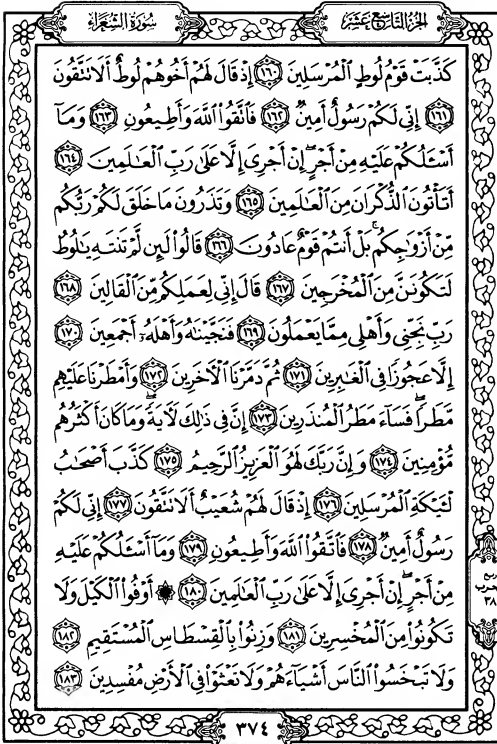 سُورَةُ الشُّعَرَاءِ
الجُزْءُ التَّاسِعَ عَشَرَ
كَذَّبَتْ قَوْمُ لُوطٍ ٱلْمُرْسَلِينَ ١٦٠ إِذْ قَالَ لَهُمْ أَخُوهُمْ لُوطٌ أَلَا تَتَّقُونَ
١٦١ إِنِّي لَكُمْ رَسُولٌ أَمِينٌ ١٦٢ فَٱتَّقُوا۟ ٱللَّهَ وَأَطِيعُونِ ١٦٣ وَمَآ
أَسْـَٔلُكُمْ عَلَيْهِ مِنْ أَجْرٍ ۖ إِنْ أَجْرِىَ إِلَّا عَلَىٰ رَبِّ ٱلْعَـٰلَمِينَ ١٦٤
أَتَأْتُونَ ٱلذُّكْرَانَ مِنَ ٱلْعَـٰلَمِينَ ١٦٥ وَتَذَرُونَ مَا خَلَقَ لَكُمْ رَبُّكُم
مِّنْ أَزْوَٰجِكُم ۚ بَلْ أَنتُمْ قَوْمٌ عَادُونَ ١٦٦ قَالُوا۟ لَئِن لَّمْ تَنتَهِ يَـٰلُوطُ
لَتَكُونَنَّ مِنَ ٱلْمُخْرَجِينَ ١٦٧ قَالَ إِنِّى لِعَمَلِكُم مِّنَ ٱلْقَالِينَ ١٦٨
رَبِّ نَجِّنِى وَأَهْلِى مِمَّا يَعْمَلُونَ ١٦٩ فَنَجَّيْنَـٰهُ وَأَهْلَهُۥٓ أَجْمَعِينَ ١٧٠
إِلَّا عَجُوزًا فِى ٱلْغَـٰبِرِينَ ١٧١ ثُمَّ دَمَّرْنَا ٱلْـَٔاخَرِينَ ١٧٢ وَأَمْطَرْنَا عَلَيْهِم
مَّطَرًا ۖ فَسَآءَ مَطَرُ ٱلْمُنذَرِينَ ١٧٣ إِنَّ فِى ذَٰلِكَ لَـَٔايَةً ۖ وَمَا كَانَ أَكْثَرُهُم
مُّؤْمِنِينَ ١٧٤ وَإِنَّ رَبَّكَ لَهُوَ ٱلْعَزِيزُ ٱلرَّحِيمُ ١٧٥ كَذَّبَ أَصْحَـٰبُ
لْـَٔيْكَةِ ٱلْمُرْسَلِينَ ١٧٦ إِذْ قَالَ لَهُمْ شُعَيْبٌ أَلَا تَتَّقُونَ ١٧٧ إِنِّى لَكُمْ
رَسُولٌ أَمِينٌ ١٧٨ فَٱتَّقُوا۟ ٱللَّهَ وَأَطِيعُونِ ١٧٩ وَمَآ أَسْـَٔلُكُمْ عَلَيْهِ
مِنْ أَجْرٍ ۖ إِنْ أَجْرِىَ إِلَّا عَلَىٰ رَبِّ ٱلْعَـٰلَمِينَ ١٨٠ ۞ أَوْفُوا۟ ٱلْكَيْلَ وَلَا
تَكُونُوا۟ مِنَ ٱلْمُخْسِرِينَ ١٨١ وَزِنُوا۟ بِٱلْقِسْطَاسِ ٱلْمُسْتَقِيمِ ١٨٢
وَلَا تَبْخَسُوا۟ ٱلنَّاسَ أَشْيَآءَهُمْ وَلَا تَعْثَوْا۟ فِى ٱلْأَرْضِ مُفْسِدِينَ ١٨٣
ربع
الحزب
٣٨
٣٧٤